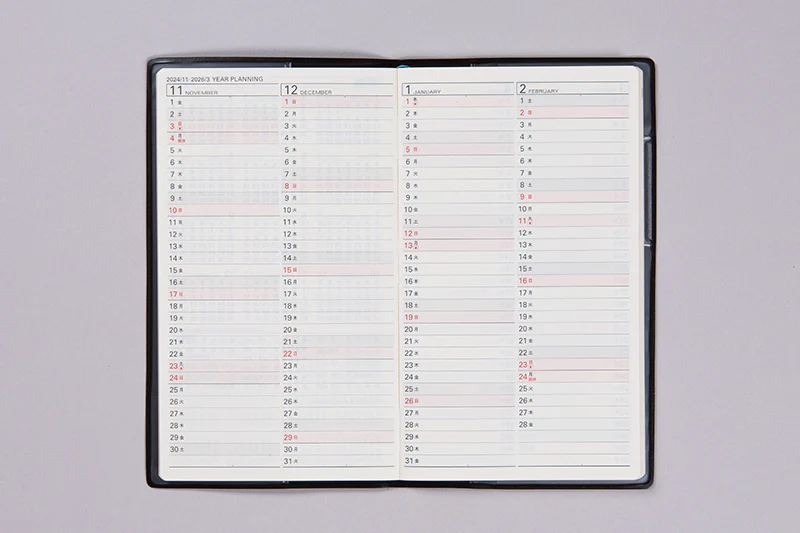 2024/11-2026/3 YEAR PLANNING
11 NOVEMBER
1 金
2 土
3 日
4 月
5 火
6 水
7 木
8 金
9 土
10 日
11 月
12 火
13 水
14 木
15 金
16 土
17 日
18 月
19 火
20 水
21 木
22 金
23 土
24 日
25 月
26 火
27 水
28 木
29 金
30 土
12 DECEMBER
1 日
2 月
3 火
4 水
5 木
6 金
7 土
8 日
9 月
10 火
11 水
12 木
13 金
14 土
15 日
16 月
17 火
18 水
19 木
20 金
21 土
22 日
23 月
24 火
25 水
26 木
27 金
28 土
29 日
30 月
31 火
1 JANUARY
1 水
2 木
3 金
4 土
5 日
6 月
7 火
8 水
9 木
10 金
11 土
12 日
13 月
14 火
15 水
16 木
17 金
18 土
19 日
20 月
21 火
22 水
23 木
24 金
25 土
26 日
27 月
28 火
29 水
30 木
31 金
2 FEBRUARY
1 土
2 日
3 月
4 火
5 水
6 木
7 金
8 土
9 日
10 月
11 火
12 水
13 木
14 金
15 土
16 日
17 月
18 火
19 水
20 木
21 金
22 土
23 日
24 月
25 火
26 水
27 木
28 金